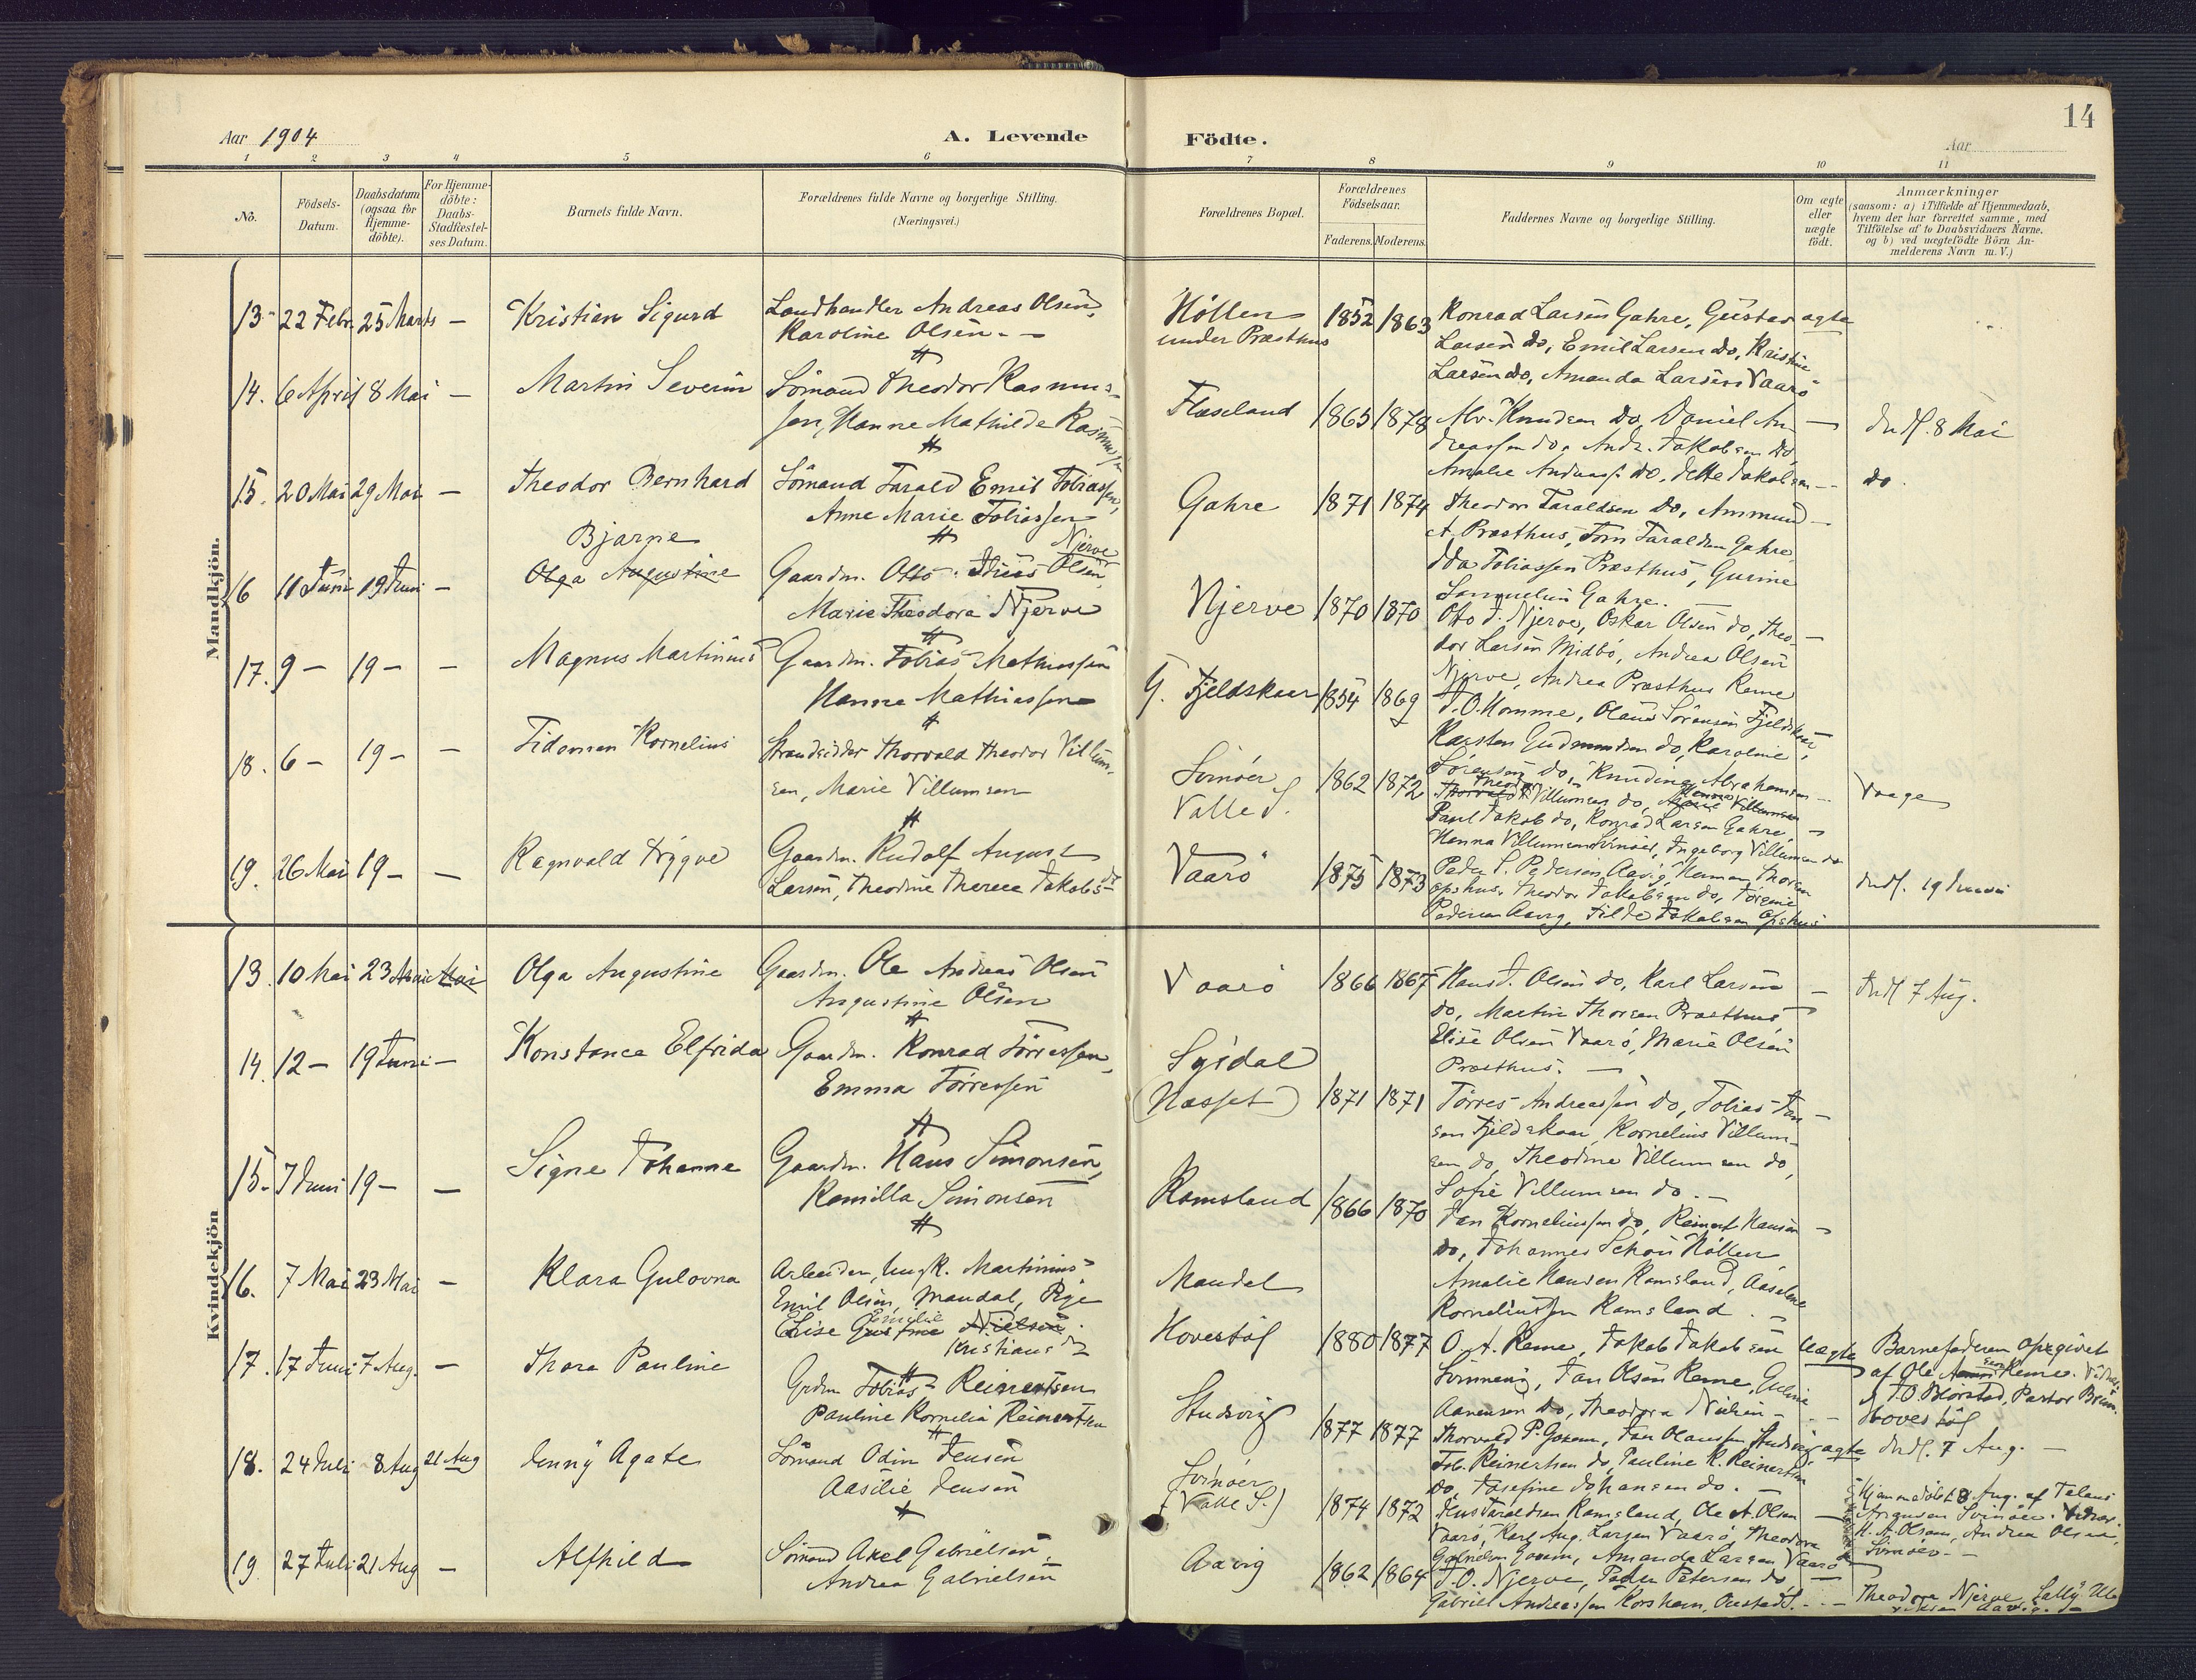 14
Aar 1904
A. Levende Födte.
Aar
1 2 3 4 5 6 7 8 9 10 11
No.
Födsels-
Datum.
Daabsdatum
(ogsaa for
Hjemme-
döbte).
For Hjemme-
döbte:
Daabs-
Stadfæstel-
ses Datum.
Barnets fulde Navn.
Forældrenes fulde Navne og borgerlige Stilling.
(Næringsvei.)
Forældrenes Bopæl.
Forældrenes
Födselsaar.
Faderens. Moderens.
Faddernes Navne og borgerlige Stilling.
Om ægte
eller
uægte
födt.
Anmærkninger
(saasom: a) i Tilfælde af Hjemmedaab,
hvem der har forrettet samme, med
Tilföielse af to Daabsvidners Navne.
og b) ved uægtefödte Börn An-
melderens Navn m. V.)
Mandkjön.
13. 22 Febr. 25 Marts — Kristian Sigurd
Landhandler Andreas Olsen,
Karoline Olsen.
Höllen
under Præsthus
1852 1863
Konrad Larsen Gahre, Gustav
Larsen do, Emil Larsen do, Kristine
Larsen do, Amanda Larsen Vaarö
ægte
14. 6 April 8 Mai — Martin Severin
Sömand Theodor Rasmus-
sen, Hanne Mathilde Rasmussen
Flaseland
1865 1878
Alv. Knudsen do, Daniel An-
dreassen do, Andr. Jakobsen do
Amalie Andreass. do, Jette Jakobsen
— Indl. 8 Mai
15. 20 Mai 29 Mai — Theodor Bernhard
Sömand Tarald Emil Tobiassen,
Anne Marie Tobiassen
Gahre
1871 1874
Theodor Taraldsen do, Ammund
A. Præsthus, Törn Taraldsen Gahre,
Ida Tobiassen Præsthus, Gurine
Samuelsen Gahre.
— do.
16 11 Juni 19 Juni —
Bjarne
Olga Augustine
Gaardm. Otto Olsen Njerve
Marie Theodora Njerve
Njerve
1870 1870
Otto J. Njerve, Oskar Olsen do, Theo-
dor Larsen Midbö, Andrea Olsen
Njerve, Andrea Præsthus Reme
—
17. 9 — 19 — — Magnus Martinius
Gaardm. Tobias Mathiassen
Hanna Mathiassen
Y. Fjeldskaar
1854 1869
J. O. Homme, Olaus Sörensen Fjeldskaar,
Karsten Gudmundsen do, Karoline
Sörensen do, Knudine Abrahamsen
18. 6 — 19 — — Tideman Kornelius
Strandsidder Thorvald Theodor Villum-
sen, Marie Villumsen
Svinöer
Valle S.
1862 1872
Theodor Villumsen do, Hanna Villumsen
Paul Jakob do, Konrad Larsen Gahre,
Hanna Villumsen Svinöer, Ingeborg Villumsen do
— Vaage
19. 26 Mai 19 — — Ragnvald Trygve
Gaardm. Rudolf August
Larsen, Theodine Therese Jakobs
Vaarö
1875 1873
Peder S. Pedersen Aavig, Herman Thorsen
Opshus, Theodor Jakobsen do,
Pedersen Aavig, Tilde Jakobsen Opshus
Indl. 19 Juni
Kvindekjön
13. 10 Mai 23 Mai Mai Olga Augustine
Gaardm. Ole Andreas Olsen
Augustine Olsen
Vaarö
1866 1867
Hans J. Olsen do, Karl Larsen
do, Martin Thorsen Præsthus
Elise Olsen Vaarö, Marie Olsen
Præsthus.
— Indl 7 Aug.
14. 12 — 19 Juni — Konstance Elfrida
Gaardm. Konrad Törressen,
Emma Törressen
Sÿrdal
(Næsset)
1871 1871
Törres Andreassen do, Tobias Jan-
sen Fjeldskaar, Kornelius Villum-
sen do, Theodine Villumsen do,
Sofie Villumsen do.
—
15. 7 Juni 19 — — Signe Johanne
Gaardm. Hans Simonsen,
Kamilla Simonsen
Ramsland
1866 1870
Jan Korneliussen do, Reinert Hansen
do, Johannes Schou Höllen
Amalie Hansen Ramsland, Aaselene
Korneliussen Ramsland.
—
16. 7 Mai 23 Mai — Klara Gulovna
Arbeider, Ungk. Martinius
Emil Olsen, Mandal, Pige
Elise Gustine Nielsen
Kristians
Mandal
Hovestöl
1880 1877
O. A. Reme, Jakob Jakobsen
Jan Olsen Reme,
Aanensen do, Theodora Nielsen
uægte
Barnefaderen opgivet
af Ole Reme.
J. O. Blörstad, Pastor Brun.
Hovestöl
17. 17 Juni 7 Aug. — Thora Pauline
Grdm Tobias Reinertsen
Pauline Kornelia Reinertsen
Studsvig
1877 1877
Thorvald P. Gosem, Jan Olaussen Studsvig
Tob. Reinertsen do, Pauline K. Reinertsen
do, Josefine Johansen do.
ægte Indl. 7 Aug.
18. 24 Juli 8 Aug 21 Aug Jenny Agate
Sömand Odin Jensen
Aasilie Jensen
Svinöer
(Valle S.)
1874 1872
Jens Taraldsen Ramsland, Ole A. Olsen
Vaarö, Karl Aug. Larsen Vaarö, Theodora
Gabrielsen Gosem, Amanda Larsen Vaarö
—
Hjemmedöbt 8 Aug. af Telani
Svinöer.
H. A. Olsen, Andrea Olsen,
Svinöer.
19. 27 Juli 21 Aug — Alfhild
Sömand Axel Gabrielsen
Andrea Gabrielsen
Aavig
1862 1864
J. O. Njerve, Peder Petersen do
Gabriel Andreassen Korshavn,
— Theodora Njerve,